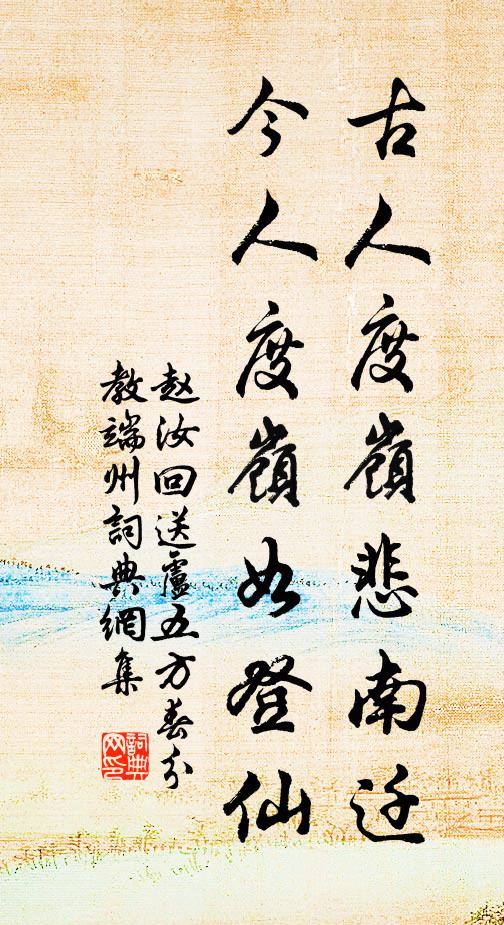 古人度嶺悲南迁
今人度嶺如登仙
赵汝回送盧五方春分
教端州詞典網集
詞典网印